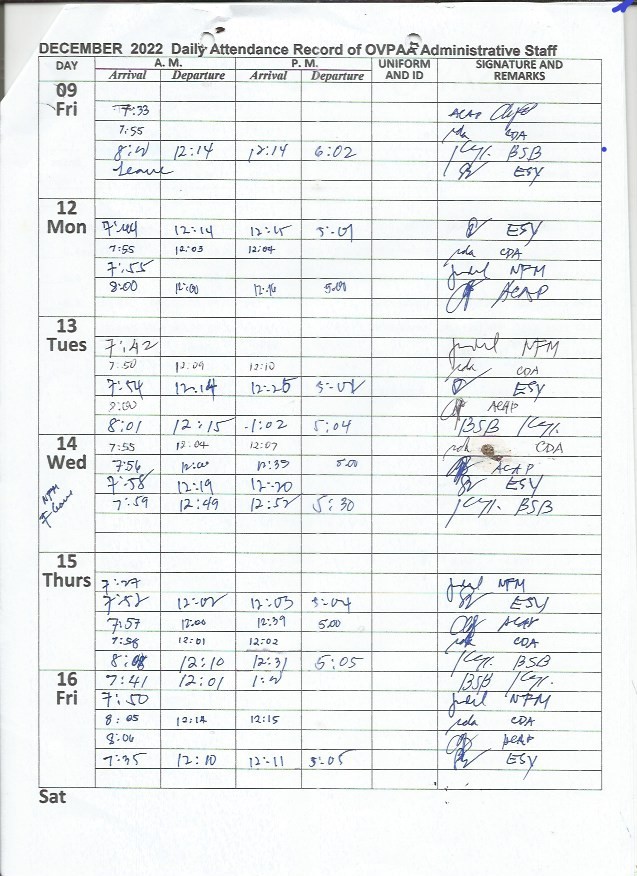 DECEMBER 2022 Daily Attendance Record of OVPAA Administrative Staff
DAY A. M. P. M. UNIFORM AND ID SIGNATURE AND REMARKS
Arrival Departure Arrival Departure
09 Fri
7:33 ACAP
7:55 CDA
12:14 12:14 6:02 BSB
Leave ESY
12 Mon
7:44 12:14 5:01 ESY
7:55 12:03 12:04 CDA
7:55 NFM
8:00 12:00 5:00 ACAP
13 Tues
7:42 NFM
7:50 12:09 12:10 CDA
7:54 12:14 12:25 5:01 ESY
ACAP
8:01 12:15 1:02 5:04 BSB
14 Wed
7:55 12:04 12:07 CDA
7:56 12:35 5:00 ACAP
7:58 12:19 12:20 ESY
7:59 12:49 12:52 5:30 BSB
NFM
15 Thurs
7:27 NFM
7:52 12:02 12:03 5:04 ESY
7:57 12:00 12:39 5:00 ACAP
7:58 12:01 12:02 CDA
12:10 12:31 5:05 BSB
16 Fri
7:41 12:01 BSB
7:50 NFM
8:05 12:14 12:15 CDA
8:06 ACAP
7:35 12:10 12:11 5:05 ESY
Sat